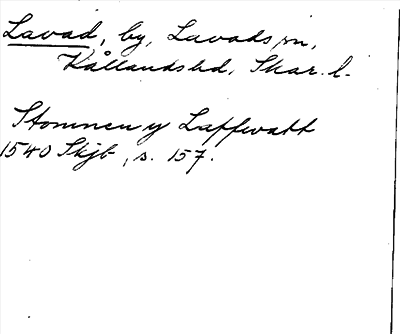 Lavad, by, Lavads sn,
Kållandshd, Skar. l.
Stommen y Laffwatt
1540 Skjb, s. 157.